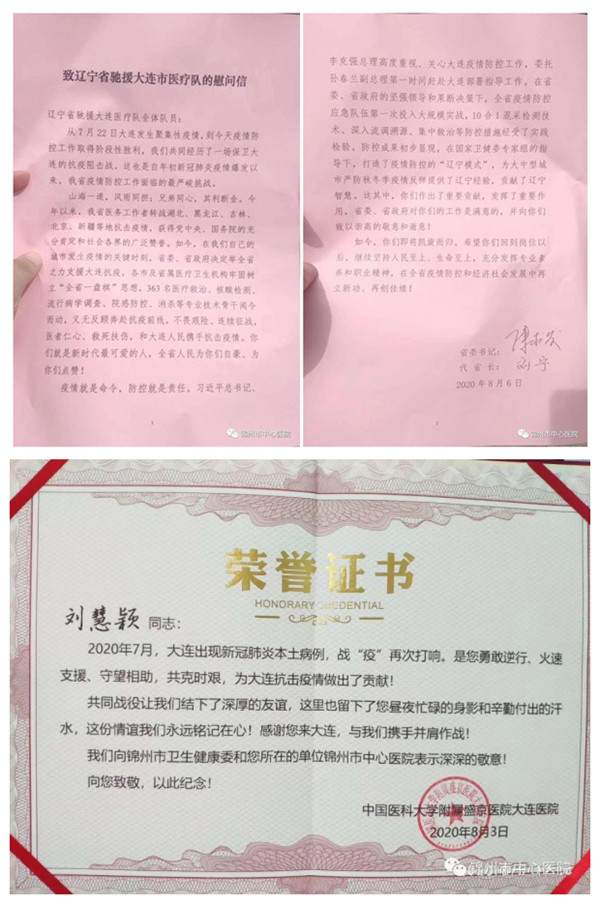 致辽宁省驰援大连市医疗队的慰问信
辽宁省驰援大连医疗队全体队员：
从7月22日大连发生聚集性疫情，到今天疫情防
控工作取得阶段性胜利，我们共同经历了一场保卫大
连的抗疫阻击战。这也是自年初新冠肺炎疫情爆发以
来，我省疫情防控工作面临的最严峻挑战。
山海一道，风雨同担；兄弟同心，其利断金。今
年以来，我省医务工作者转战湖北、黑龙江、吉林、
北京、新疆等地抗击疫情，获得党中央、国务院的充
分肯定和社会各界的广泛赞誉。如今，在我们自己的
城市发生疫情的关键时刻，省委、省政府决定举全省
之力支援大连抗疫，各市及省属医疗卫生机构牢固树
立“全省一盘棋”思想，363名医疗救治、核酸检测、
流行病学调查、院感防控、消杀等专业技术骨干闻令
而动，又无反顾奔赴抗疫前线，不畏艰险、连续征战，
医者仁心、救死扶伤，和大连人民携手抗击疫情。你
们就是新时代最可爱的人，全省人民为你们自豪、为
你们点赞！
疫情就是命令，防控就是责任。习近平总书记、
1
锦州市中心医院
李克强总理高度重视、关心大连疫情防控工作，委托
孙春兰副总理第一时间赴赴大连部署指导工作，在省
委、省政府的坚强领导和果断决策下，全省疫情防控
应急队伍第一次投入大规模实战，10合1混采检测技
术、深入流调溯源、集中救治等防控措施经受了实践
检验，防控成果初步显现，在国家卫健委专家组的指
导下，打造了疫情防控的“辽宁模式”，为大中型城
市严防秋冬季疫情反样提供了辽宁经验，贡献了辽宁
智慧。这其中，你们作出了重要贡献，发挥了重要作
用，省委、省政府对你们的工作是满意的，并向你们
致以崇高的敬意和谢意！
如今，你们即将凯旋而归，希望你们回到岗位以
后，继续坚持人民至上、生命至上，充分发挥专业素
养和职业精神，在全省疫情防控和经济社会发展中再
立新功、再创佳绩！
省委书记：陈求发
代省长：刘宁
2020年8月6日
锦州市中心医院
荣誉证书
HONORARY CREDENTIAL
刘慧颖 同志：
2020年7月，大连出现新冠肺炎本土病例，战“疫”再次打响。是您勇敢逆行、火速
支援、守望相助，共克时艰，为大连抗击疫情做出了贡献！
共同战役让我们结下了深厚的友谊，这里也留下了您昼夜忙碌的身影和辛勤付出的汗
水，这份情谊我们永远铭记在心！感谢您来大连，与我们携手并肩作战！
我们向锦州市卫生健康委和您所在的单位锦州市中心医院表示深深的敬意！
向您致敬，以此纪念！
中国医科大学附属盛京医院大连医院
2020年8月3日
锦州市中心医院